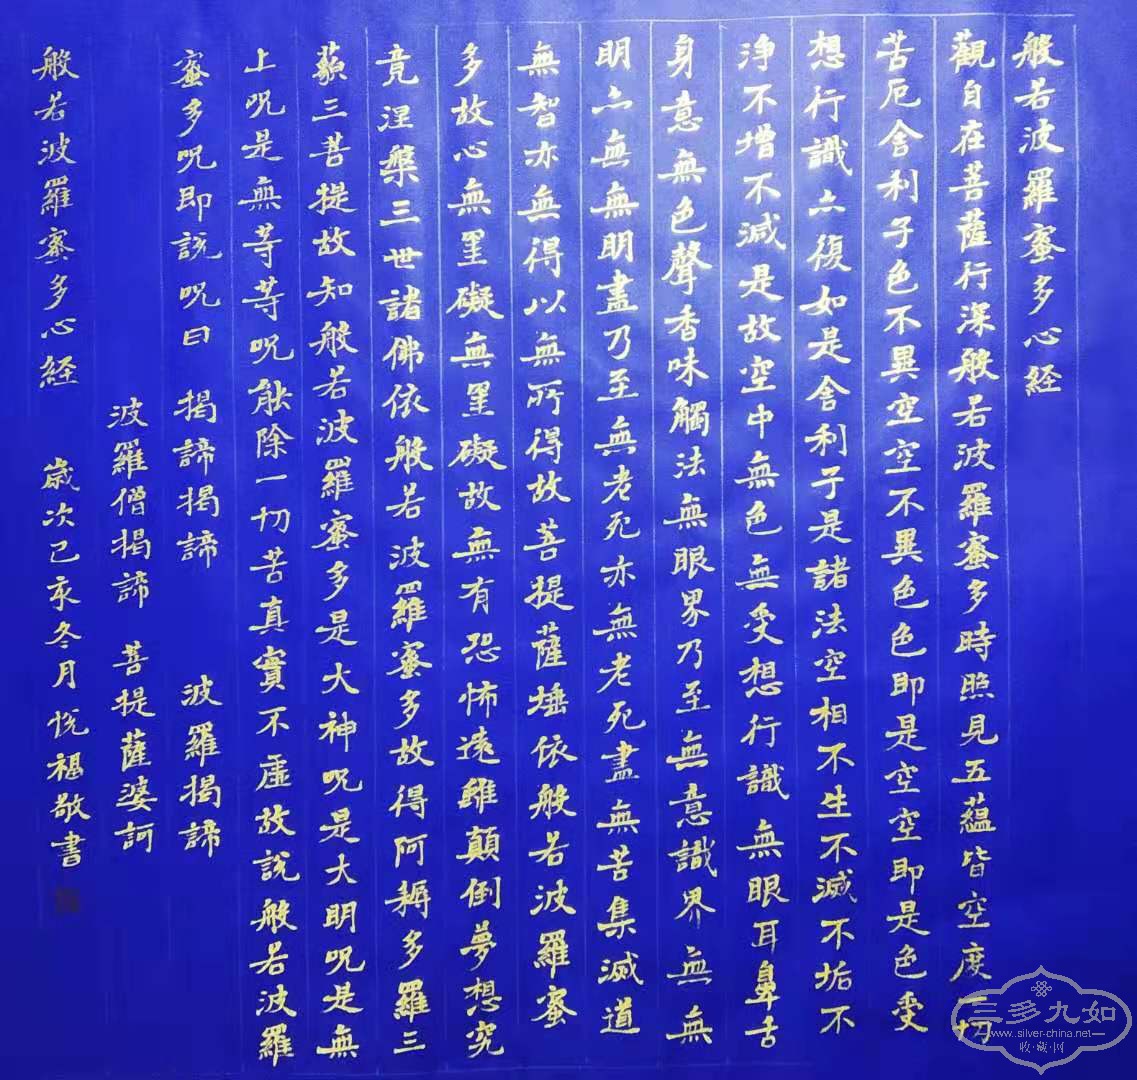 般若波羅蜜多心経
觀自在菩薩行深般若波羅蜜多時照見五蘊皆空度一切
苦厄舍利子色不異空空不異色色即是空空即是色受
想行識亦復如是舍利子是諸法空相不生不滅不垢不
淨不增不減是故空中無色無受想行識無眼耳鼻舌
身意無色聲香味觸法無眼界乃至無意識界無無
明亦無無明盡乃至無老死亦無老死盡無苦集滅道
無智亦無得以無所得故菩提薩埵依般若波羅蜜
多故心無罣礙無罣礙故無有恐怖遠離顛倒夢想究
竟涅槃三世諸佛依般若波羅蜜多故得阿耨多羅三
藐三菩提故知般若波羅蜜多是大神呪是大明呪是無
上呪是無等等呪能除一切苦真實不虛故說般若波羅
蜜多呪即說呪曰 揭諦揭諦 波羅揭諦
波羅僧揭諦 菩提薩婆訶
般若波羅蜜多心経 歲次己亥冬月悅福敬書
三多九如
www.silver-china.net
收·藏·网